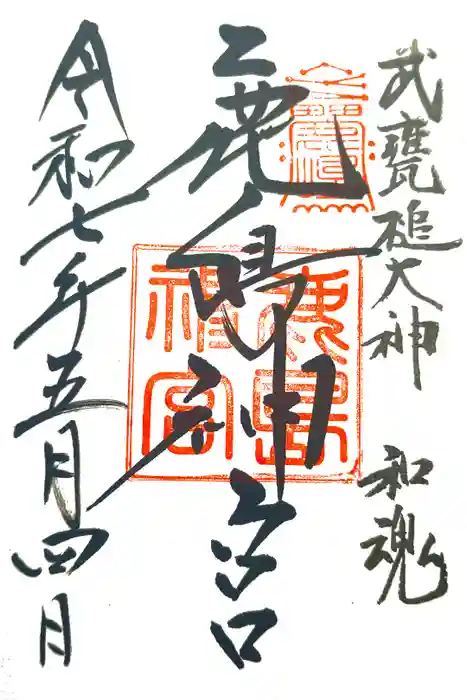 武甕槌大神 和魂
鹿島神宮
鹿島
神宮
令和七年五月四日